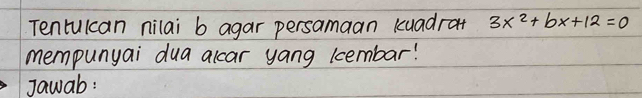 Tentukan nilai b agar persamaan kuadrat 3x² + bx + 12 = 0
mempunyai dua akar yang kembar!
Jawab: